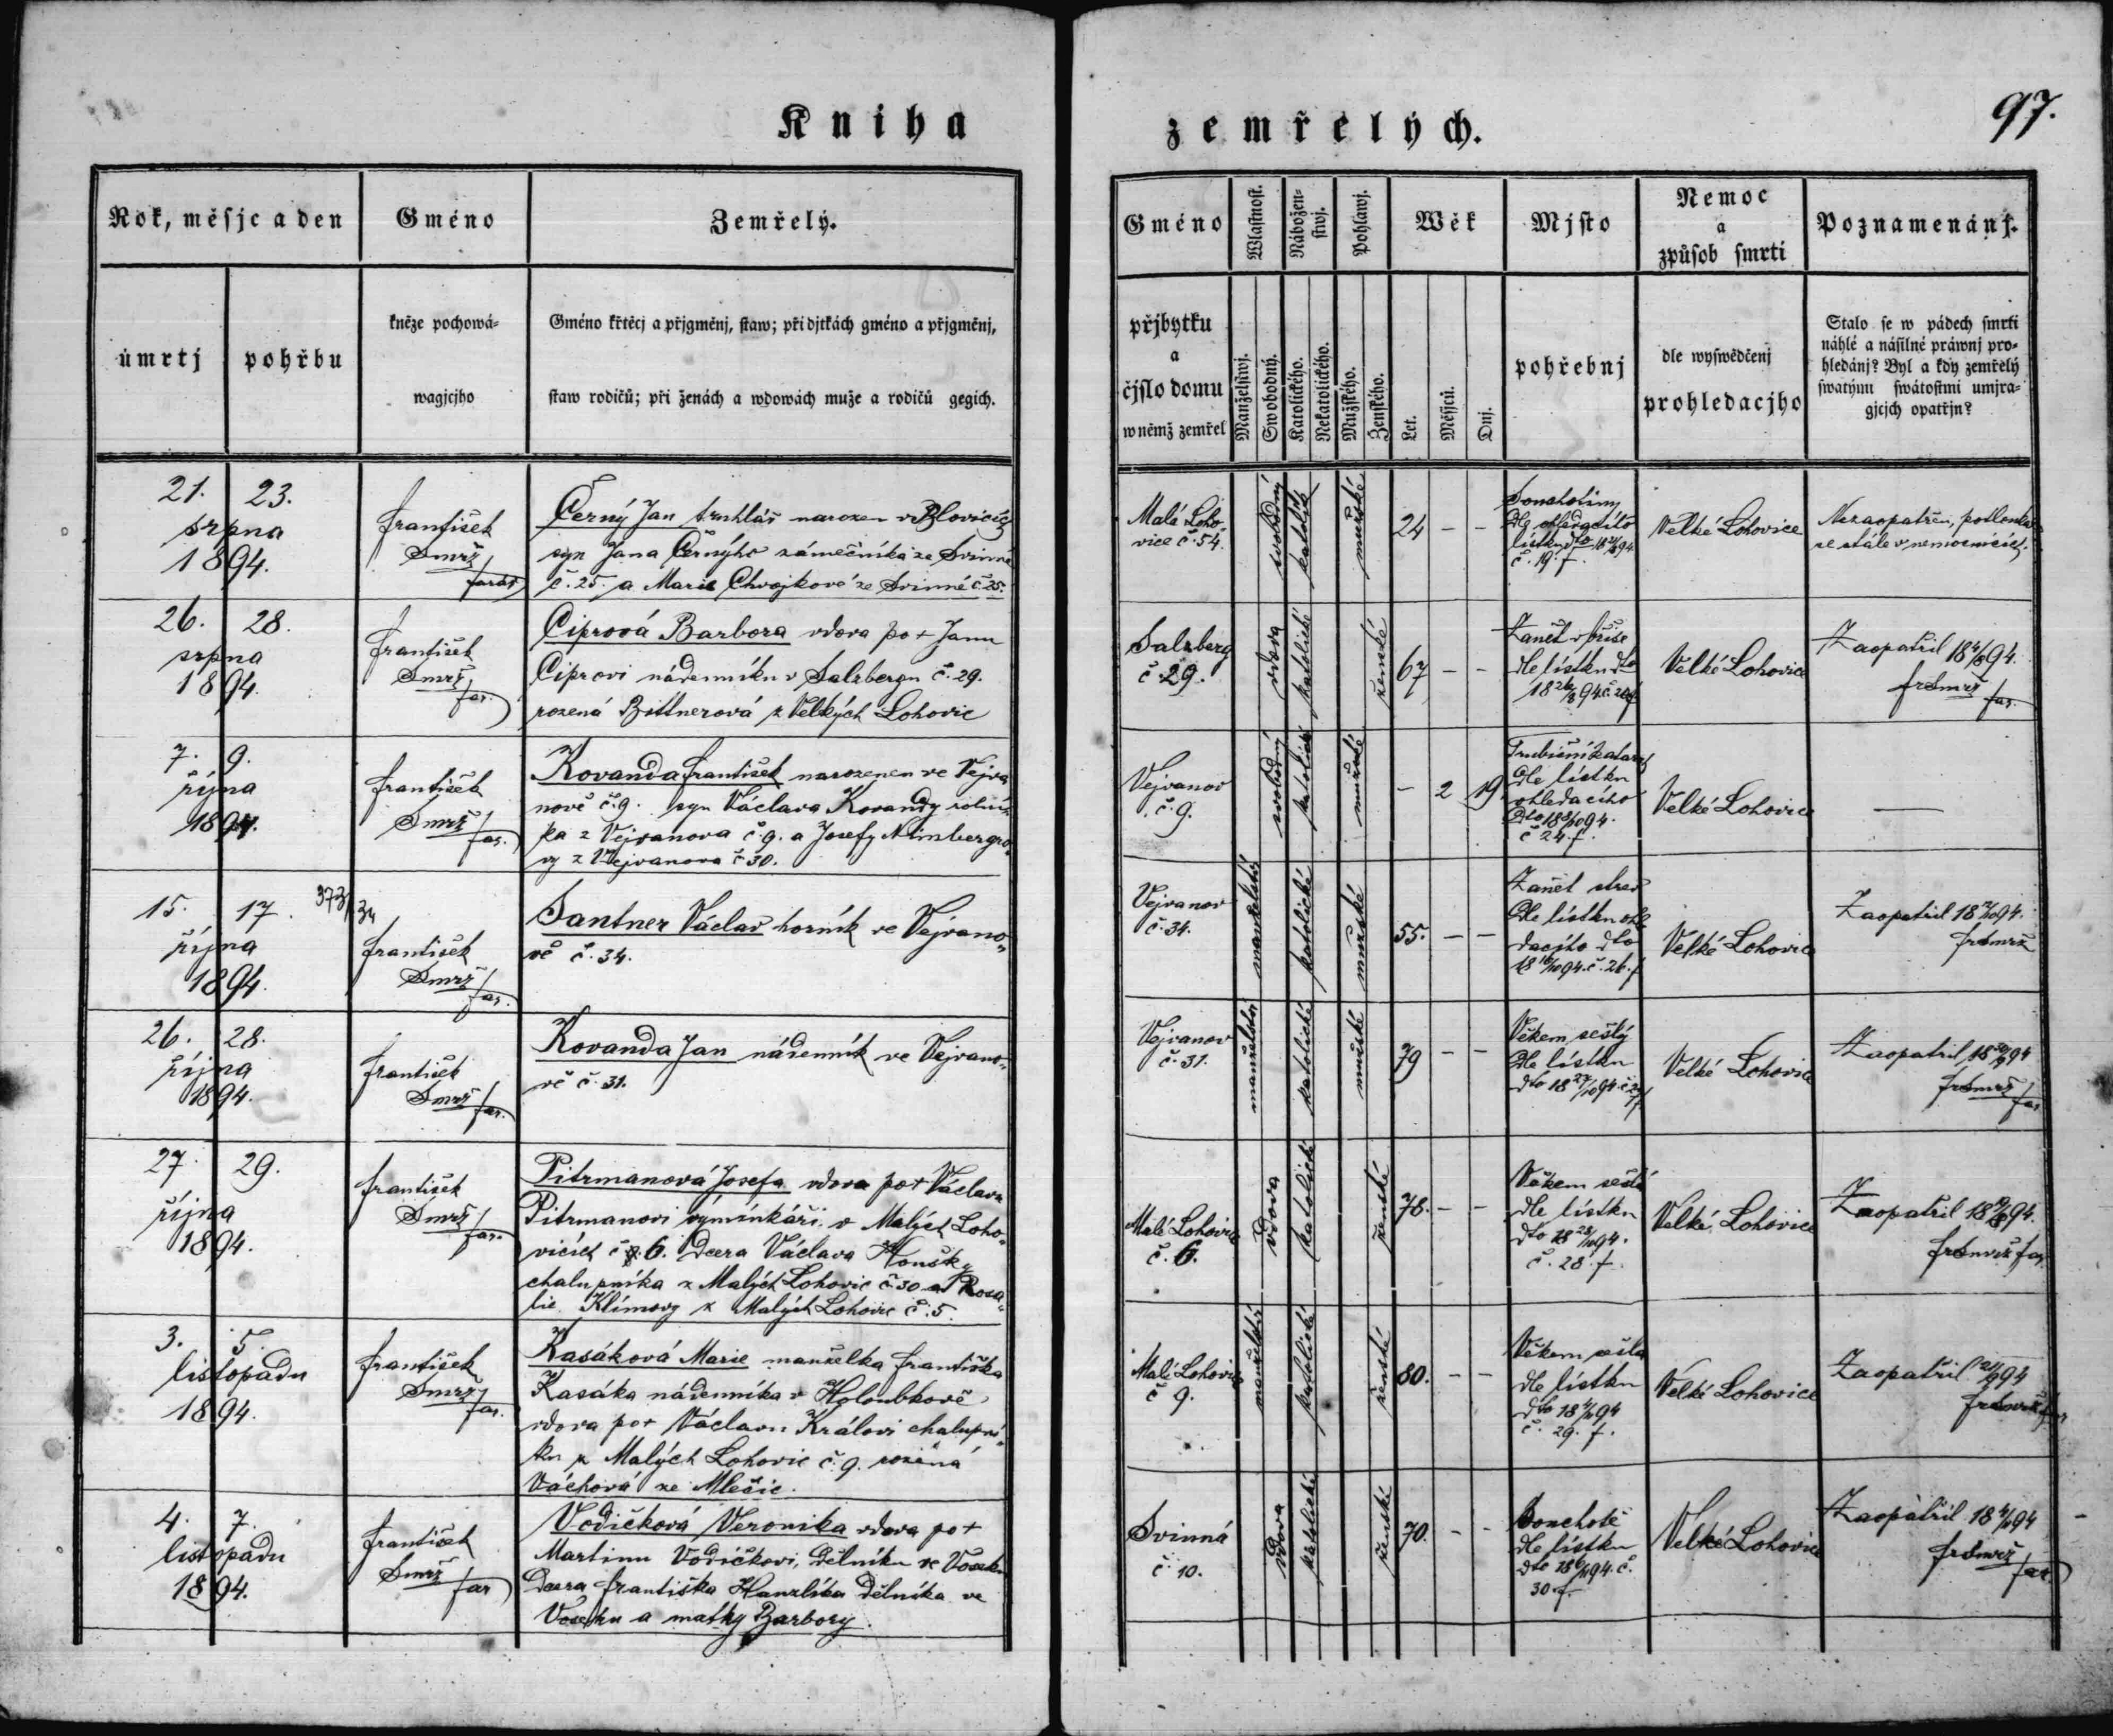 Kniha
zemřelých.
97.
Rok, měsjc a den
Gméno
Zemřelý.
úmrtj
pohřbu
kněze pochowá-
wagjcjho
Gméno křtěcj a přjgměnj, staw; při djtkách gméno a přjgměnj,
staw rodičů; při ženách a wdowách muže a rodičů gegich.
Gméno
Wlastnost.
Nábožen-
stwj.
Pohlawj.
Wěk
Mjsto
Nemoc
a
způsob smrti
Poznamenánj.
přjbytku
a
čjslo domu
w němž zemřel
Manželstwj.
Swobodný.
Katolického.
Nekatolického.
Mužského.
Ženského.
Let.
Měsjců.
Dnj.
pohřebnj
dle wyswědčenj
prohledacjho
Stalo se w pádech smrti
náhlé a násilné práwnj pro-
hledánj? Byl a kdy zemřelý
swatými swátostmi umjra-
gjcjch opatřjn?
21. 23.
srpna
1894.
František
Smrž
farář
Černý Jan truhlář narozen v Blovicích
syn Jana Černýho zámečníka ze Svinné
č. 25. a Marie Chvojkové ze Svinné č. 25.
Malé Loho-
vice č. 54.
svobodný
katolík
mužské
24 - -
Souchotiny
Dle ohledacího
lístku dto
č. 19. f.
Velké Lohovice
Nezaopatřen,
se stále v nemocnicích.
26. 28.
srpna
1894.
František
Smrž
far.
Ciprová Barbora vdova po + Janu
Ciprovi nádenníku v Salzbergu č. 29.
rozená Bittnerová z Velkých Lohovic
Salzberg
č 29.
vdova
katolické
ženské
67 - -
Zánět v břiše
dle lístku dto
18 26/8 94 č
Velké Lohovice
Zaopatřil 18 94.
fr Smrž
far.
7. 9.
října
1894.
František
Smrž
far.
Kovanda František narozen ve Vejva
nově č. 9. syn Václava Kovandy rolní
ka z Vejvanova č. 9. a Josefy Nimbergro
vy z Vejvanova č 30.
Vejvanov
č. 9.
svobodný
katolické
mužské
- 2 19.
dle lístku
ohledacího
dto 18 8/10 94.
č 24. f.
Velké Lohovice
—
15. 17.
373/34
října
1894.
František
Smrž
far.
Santner Václav horník ve Vejvano-
vě č. 34.
Vejvanov
č. 34.
manželství
katolické
mužské
55. - -
Zánět střev
Dle lístku ohle
dacího dto
18 16/10 94. č. 26. f
Velké Lohovice
Zaopatřil 18 94.
fr Smrž
26. 28.
října
1894.
František
Smrž
far.
Kovanda Jan nádenník ve Vejvano-
vě č. 31.
Vejvanov
č. 31.
manželství
katolické
mužské
79 - -
Věkem sešlý
Dle lístku
dto 18 27/10 94. č
Velké Lohovice
Zaopatřil 18 94
fr Smrž
far
27. 29.
října
1894.
František
Smrž
far.
Pitrmanová Josefa vdova po + Václavu
Pitrmanovi výminkáři v Malých Loho-
vicích č 6. Dcera Václava Houšky
chalupníka z Malých Lohovic č 30 a Rosa-
lie Klímovy z Malých Lohovic č. 5.
Malé Lohovice
č. 6.
vdova
katolické
ženské
78. - -
Věkem sešlá
dle lístku
dto 18 28/10 94.
č. 28. f.
Velké Lohovice
Zaopatřil 18 94.
fr Smrž far
3. 5.
listopadu
1894.
František
Smrž
far.
Kasáková Marie manželka Františka
Kasáka nádenníka v Holoubkově
vdova po + Václavu Královi chalupní-
ku z Malých Lohovic č. 9. rozená
Váchová ze Mlečic.
Malé Lohovice
č 9.
manželství
katolické
ženské
80. - -
Věkem sešla
dle lístku
dto 18 94
č. 29. f.
Velké Lohovice
Zaopatřil 94
fr Smrž far
4. 7.
listopadu
1894.
František
Smrž far
Vodičková Veronika vdova po +
Martinu Vodičkovi, dělníku ve Voseku
Dcera Františka Hanzlíka dělníka ve
Voseku a matky Barbory.
Svinná
č. 10.
vdova
katolické
ženské
70. - -
Souchotě
dle lístku
dto 18 94. č.
30. f.
Velké Lohovice
Zaopatřil 18 94
fr Smrž
far.